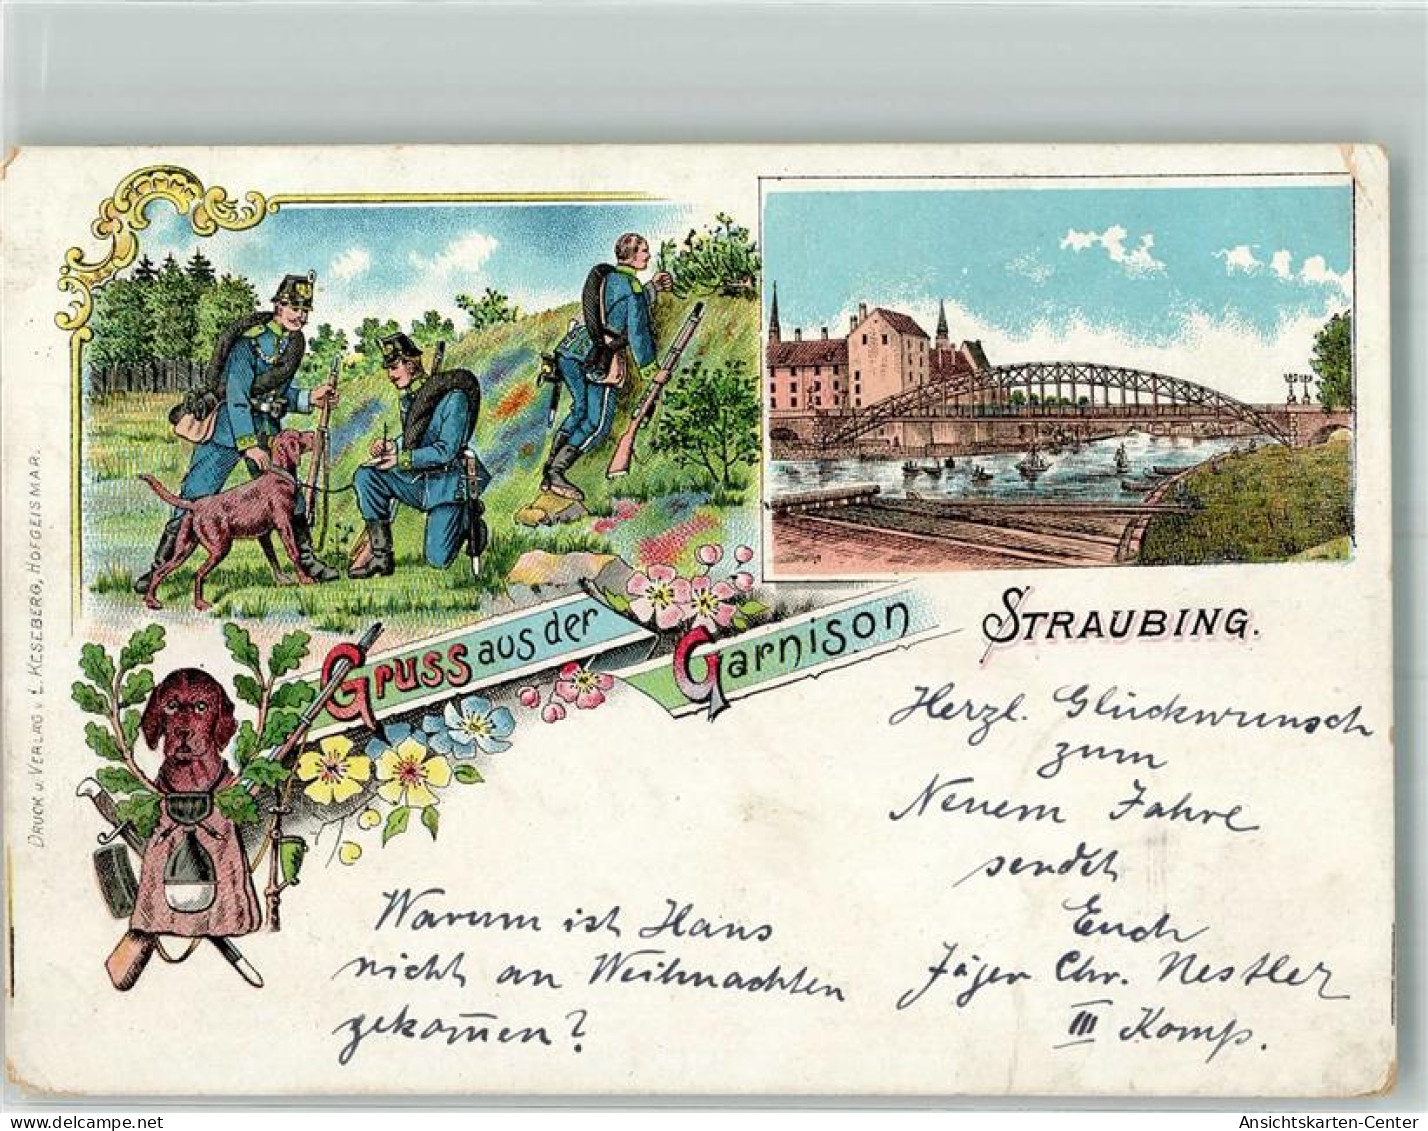 Gruss aus der Garnison
STRAUBING.
Herzl. Glückwunsch
zum
Neuem Jahre
sendet
Euch
Jäger Chr. Nestler
III Komp.
Warum ist Hans
nicht an Weihnachten
gekom̄en?
DRUCK u. VERLAG v. L. KESEBERG, HOFGEISMAR.
Ansichtskarten-Center